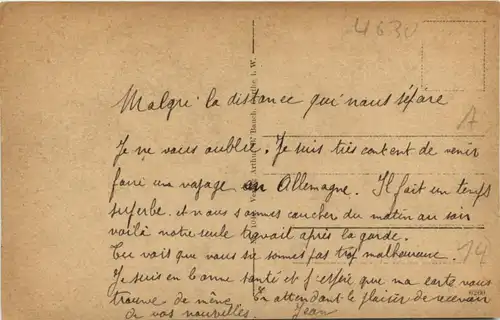 4630
Malgré la distance qui nous sépare
Je ne vous oublie. Je suis très content de venir
faire un voyage en Allemagne. Il fait un temps
superbe. et nous sommes coucher du matin au soir
voilà notre seule travail après la garde.
Tu vois que vous si somes pas trop malheureux.
Je suis en bonne santé et j'espère que ma carte vous
trouve de même. En attendant le plaisir de recevoir
de vos nouvelles. Jean
A
14
Verlag Arthur